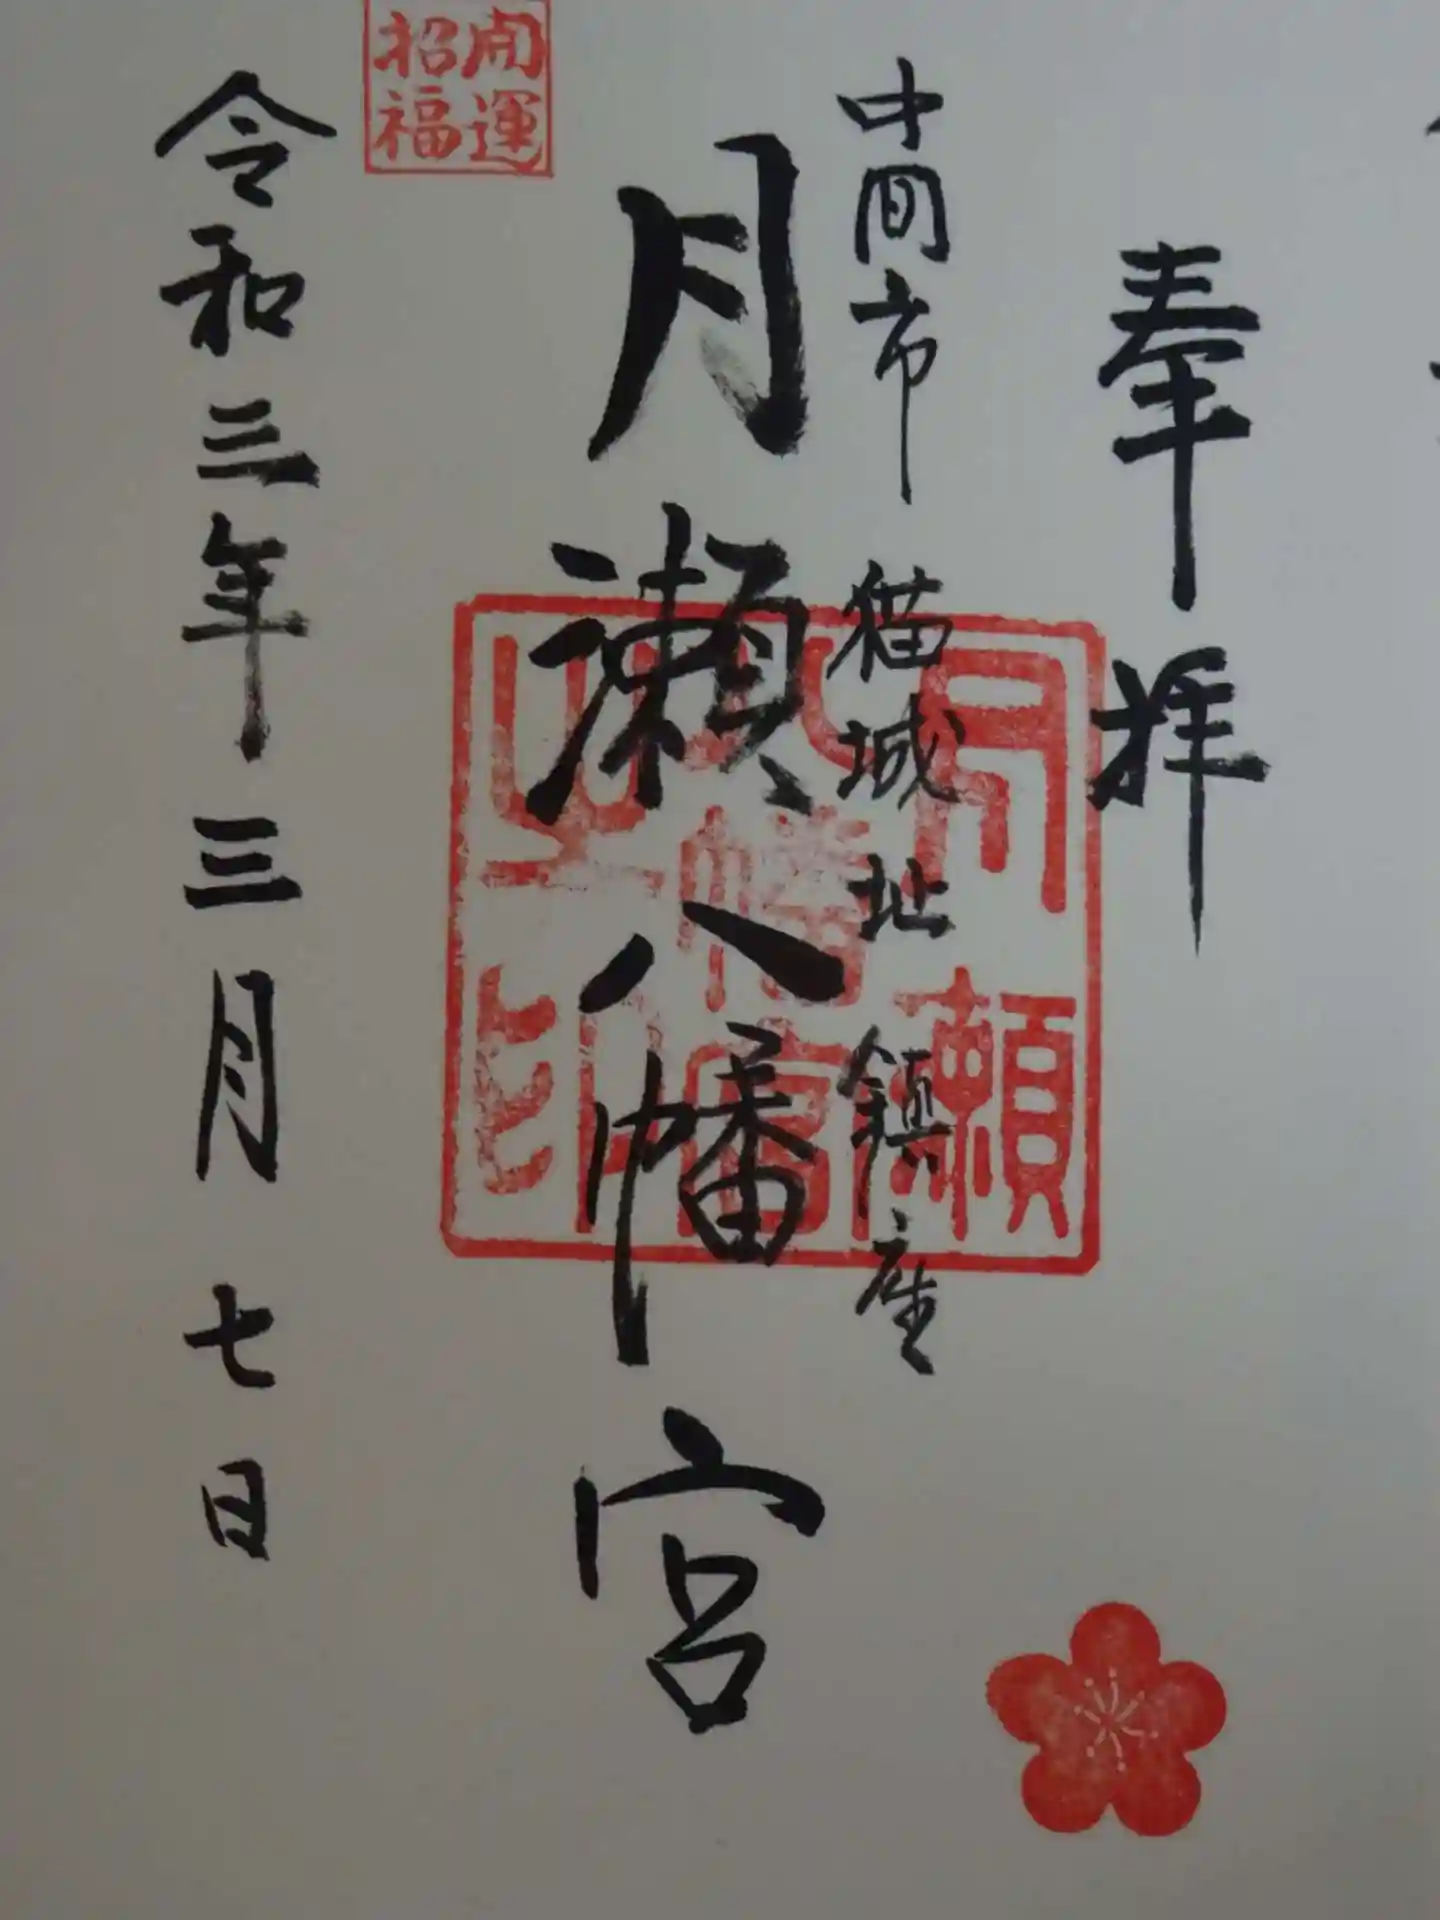 奉拝
中間市 猫城址 鎮座
月瀬八幡宮
月瀬
八幡宮
之印
開運
招福
令和三年三月七日